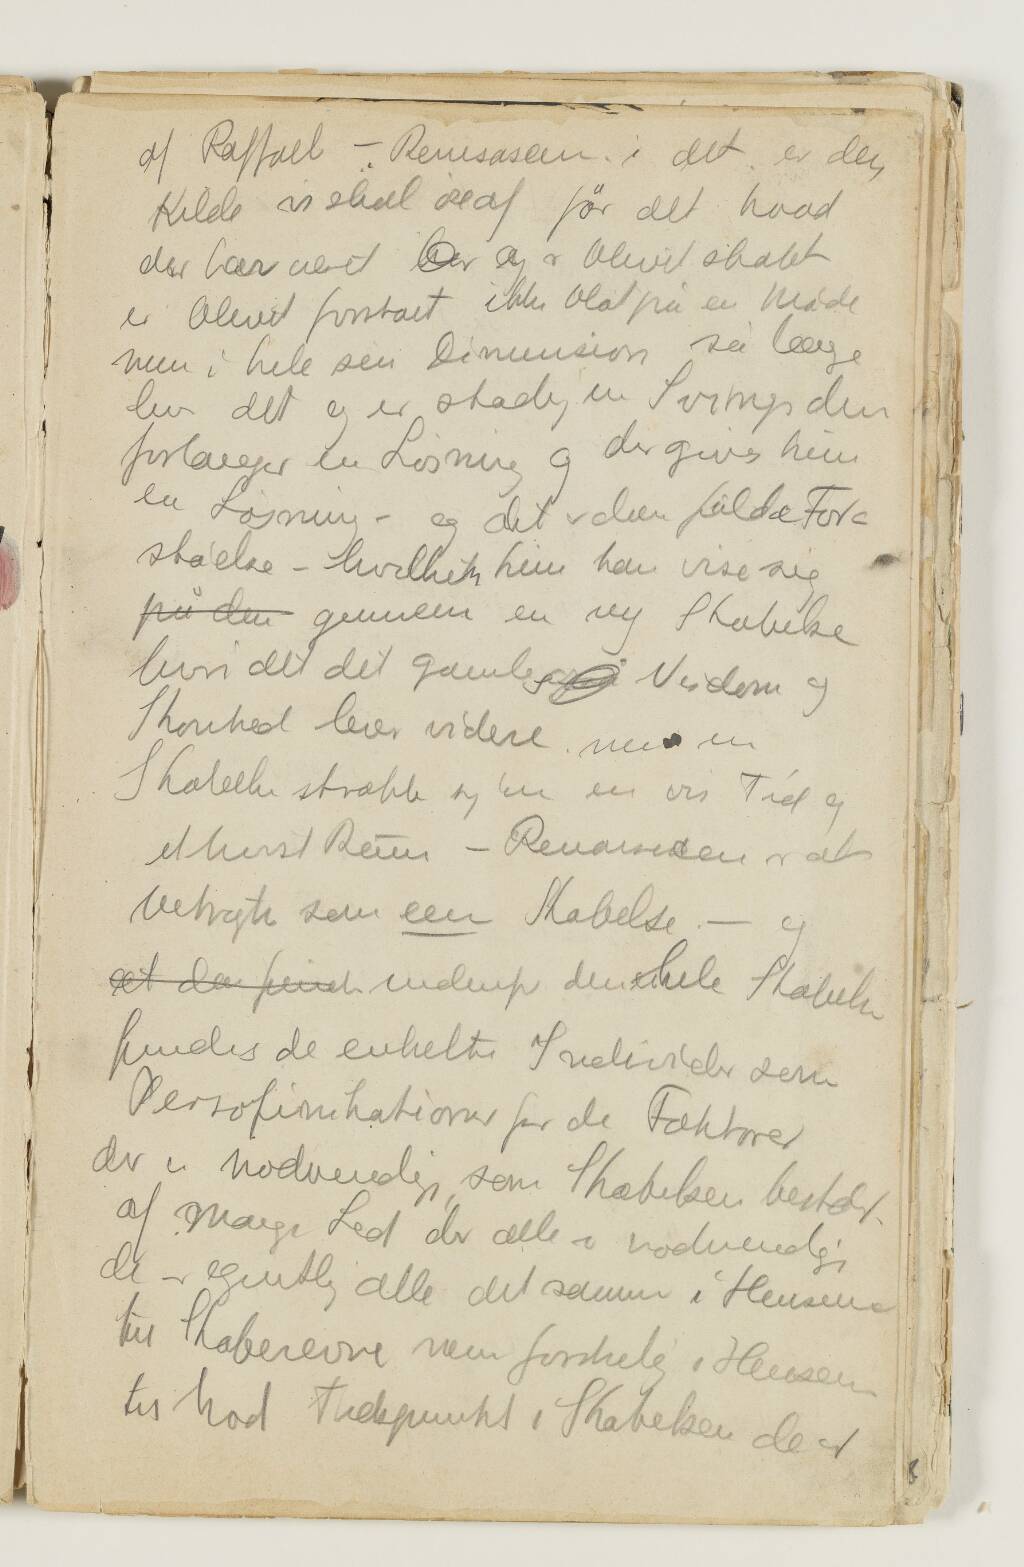 af Raffael – Renesasen. i det er den
Kilde vi skal øse af før det hvad
der har været her og er blevet skabt
er blevet forstaet ikke blot på en Måde
men i hele sin Dimension så længe
lever det og er stadig en Svinge der
forlanger en Løsning og der gives kun
en Løsning – og det er den fulde For=
ståelse – hvilket kun kan vise sig
på den gennem en ny Skabelse
hvori det det gamles Visdom og
Skønhed lever videre. men en
Skabelse strækker sig over en vis Tid og
et hvist Rum – Renaissacen er at
betragte som een Skabelse. – og
at der findes indenfor den hele Skabelse
findes de enkelte Individer som
Persofinikationer for de Faktorer
der er nødvendige, som Skabelsen består
af Mange Led der alle er nødvendige
de er egentlig alle det samme i Hensene
til Skaberevne men forskelig i Hensen
til hvad Tidspunkt i Skabelsen de er
8